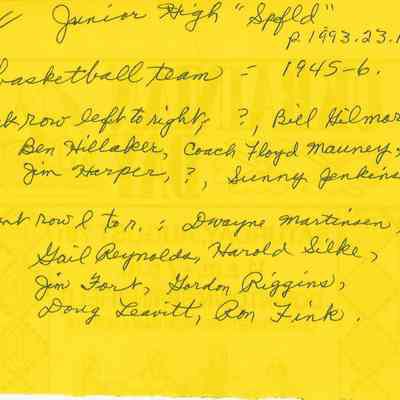 Junior High "Spfld"
p. 1993.23.1
basketball team = 1945-6.
row left to right; ?, Bill Gilmor
Ben Hillaker, Coach Floyd Mauney,
Jim Harper, ?, Sunny Jenkins
row l to r. : Dwayne Martinsen,
Gail Reynolds, Harold Silke,
Jim Fort, Gordon Riggins,
Doug Leavitt, Ron Fink.